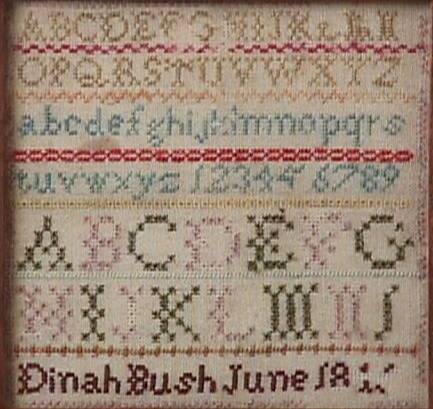 ABCDEFGHIJKLMN
OPQRSTUVWXYZ
abcdefghijklmnopqrs
tuvwxyz 123456789
ABCDEFG
HIJKLMNJ
Dinah Bush June